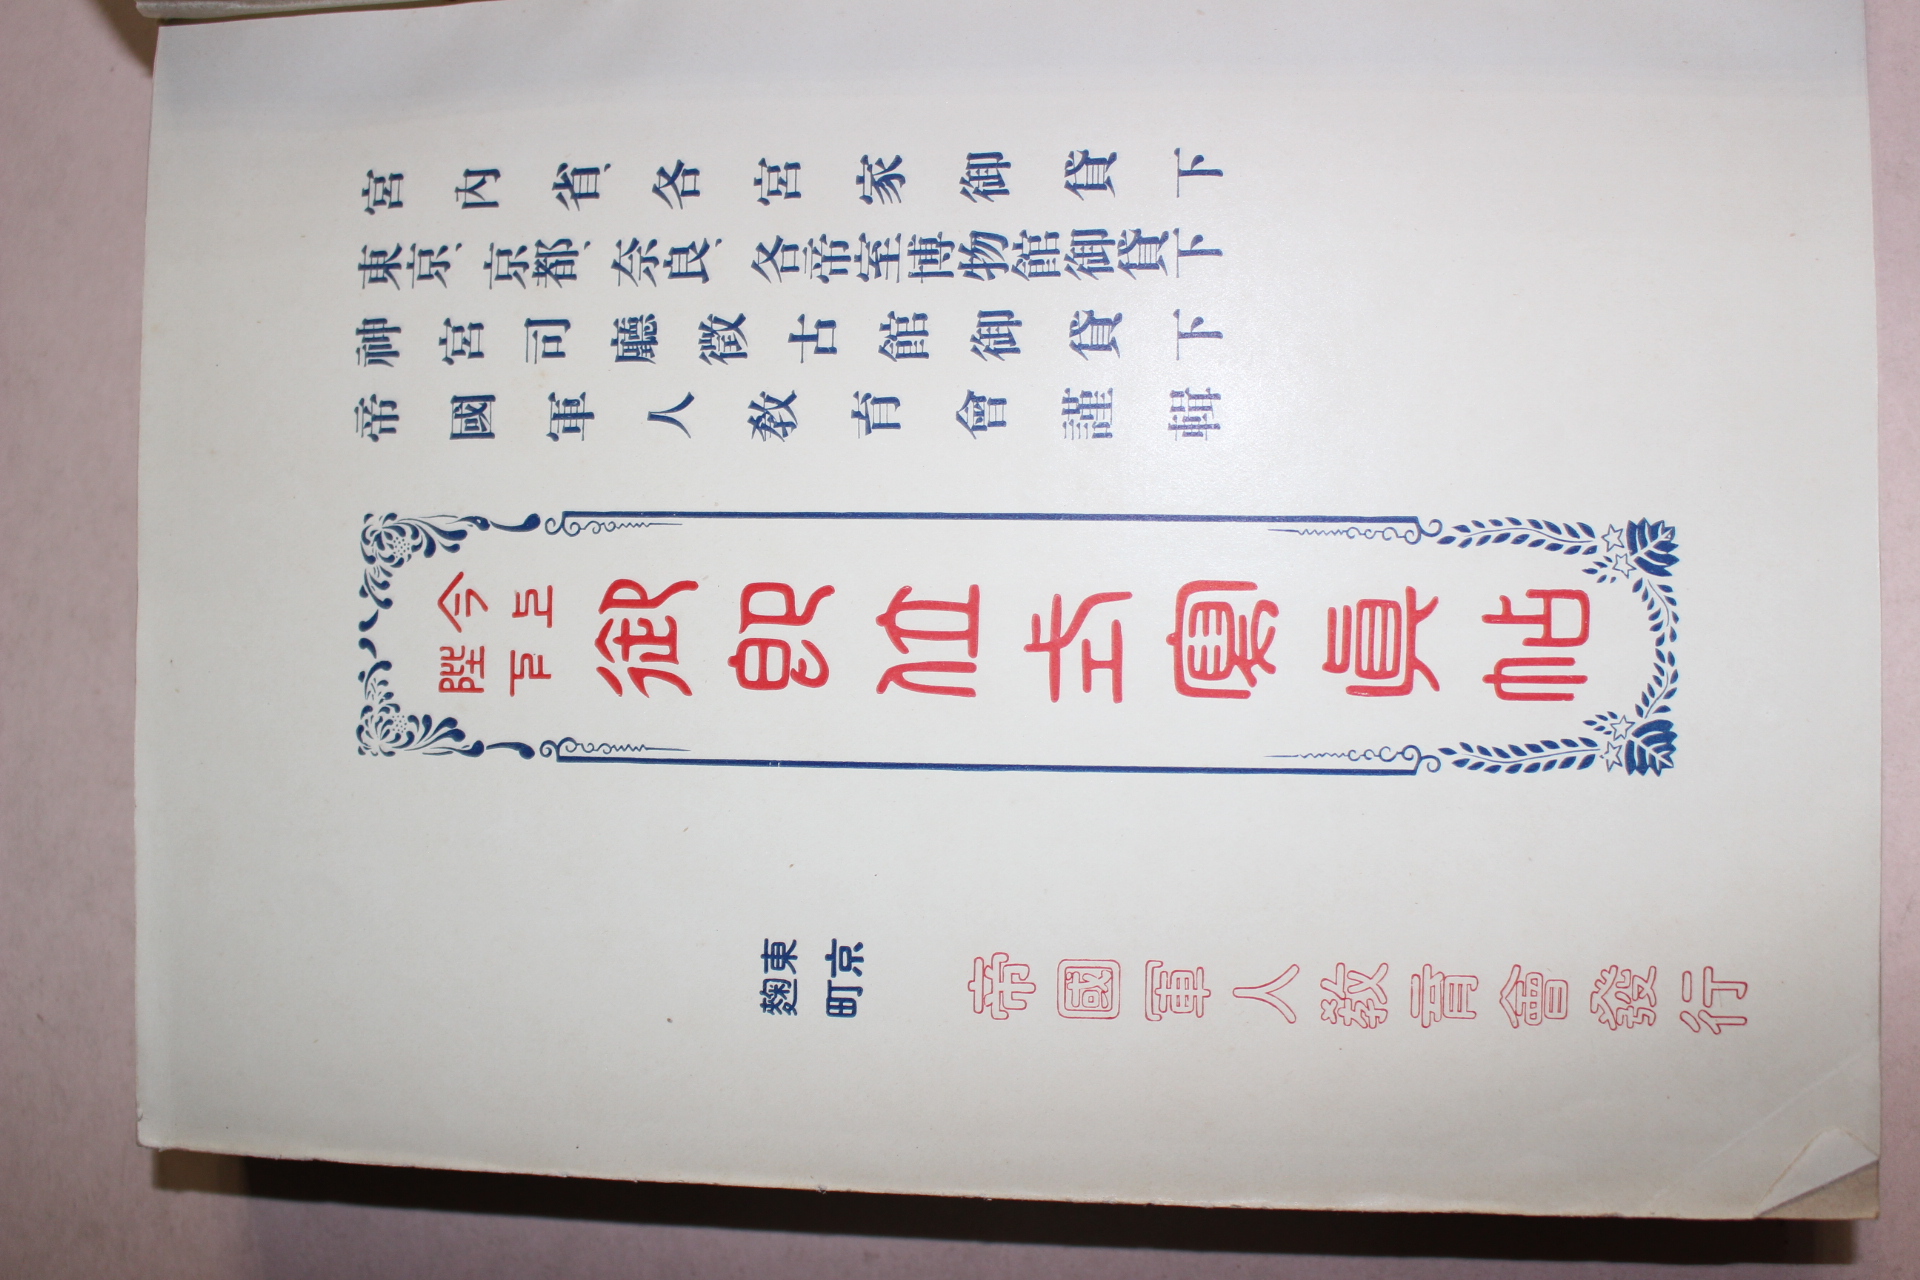 宮内省、各宮家御貸下
東京、京都、奈良、各帝室博物館御貸下
神宮司廳徵古館御貸下
帝國軍人敎育會謹輯
今上
陛下
御卽位式寫眞帖
東京
麴町
帝國軍人敎育會發行